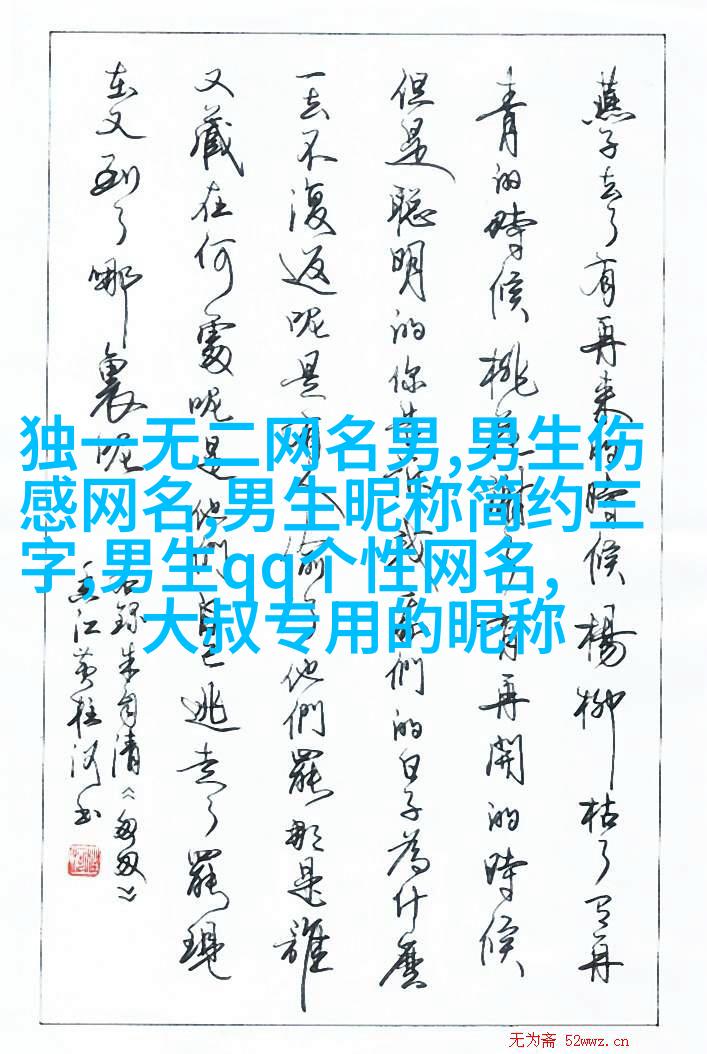 燕子去了有再来的時候楊柳枯了有再
青的時候桃花謝了有再開的時候
但是聰明的你告訴我我們的日子為什麼
一去不復返呢是有人偷了他們罷那是誰
又藏在何處呢是他們自己逃走了罷現
在又到了哪裏呢
右錄朱自清《匆匆》
香江黄柱河书
独一无二网名男,男生伤
感网名,男生昵称简约三
字,男生qq个性网名,
大叔专用的昵称
无为斋 52wwz.cn